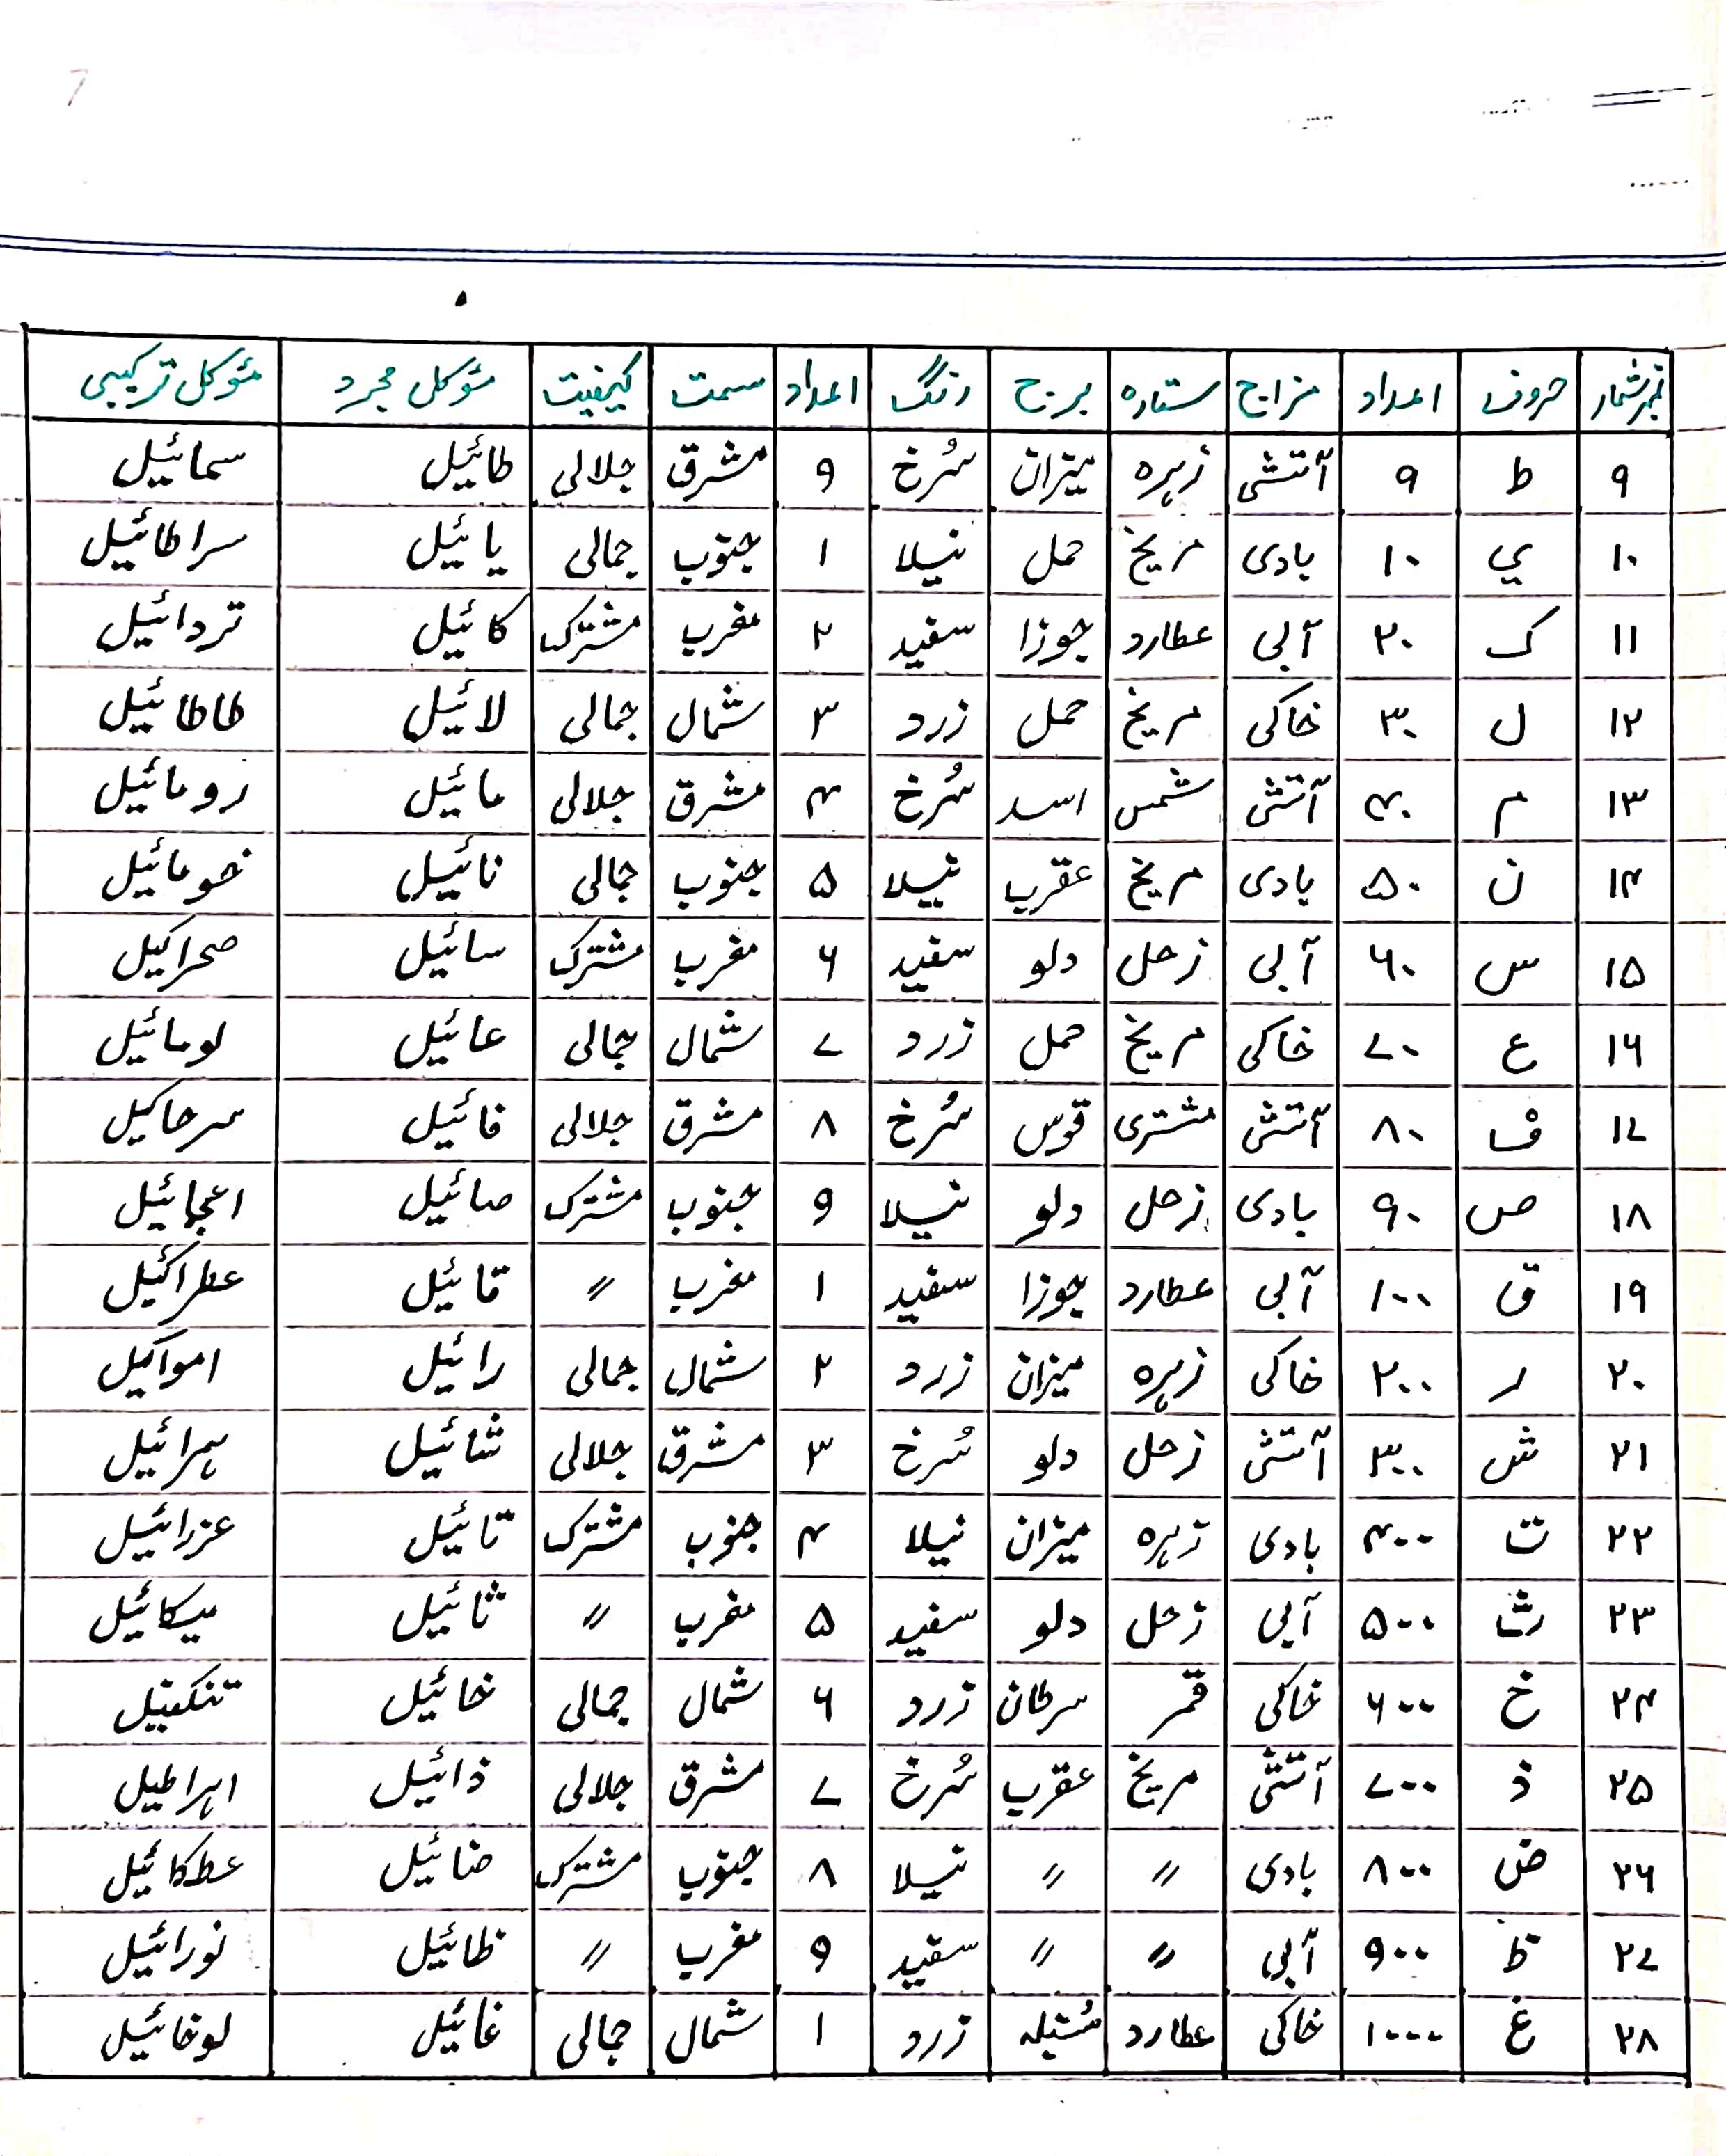 نمبر شمار حروف اعداد مزاج ستارہ برج رنگ اعداد سمت کیفیت مئوکل مجرد مئوکل ترکیبی
۹ ط ۹ آتشی زہرہ میزان سُرخ ۹ مشرق جلالی طائیل سمائیل
۱۰ ي ۱۰ بادی مریخ حمل نیلا ۱ جنوب جمالی یائیل سراطائیل
۱۱ ک ۲۰ آبی عطارد جوزا سفید ۲ مغرب مشترک کائیل تردائیل
۱۲ ل ۳۰ خاکی مریخ حمل زرد ۳ شمال جمالی لائیل طاطائیل
۱۳ م ۴۰ آتشی شمس اسد سُرخ ۴ مشرق جلالی مائیل رومائیل
۱۴ ن ۵۰ بادی مریخ عقرب نیلا ۵ جنوب جمالی نائیل خومائیل
۱۵ س ۶۰ آبی زحل دلو سفید ۶ مغرب مشترک سائیل صحراکیل
۱۶ ع ۷۰ خاکی مریخ حمل زرد ۷ شمال جمالی عائیل لومائیل
۱۷ ف ۸۰ آتشی مشتری قوس سُرخ ۸ مشرق جلالی فائیل سرحاکیل
۱۸ ص ۹۰ بادی زحل دلو نیلا ۹ جنوب مشترک صائیل اعجائیل
۱۹ ق ۱۰۰ آبی عطارد جوزا سفید ۱ مغرب 〃 قائیل عطراکیل
۲۰ ر ۲۰۰ خاکی زہرہ میزان زرد ۲ شمال جمالی رائیل امواکیل
۲۱ ش ۳۰۰ آتشی زحل دلو سُرخ ۳ مشرق جلالی شائیل ہمرائیل
۲۲ ت ۴۰۰ بادی زہرہ میزان نیلا ۴ جنوب مشترک تائیل عزرائیل
۲۳ ث ۵۰۰ آبی زحل دلو سفید ۵ مغرب 〃 ثائیل میکائیل
۲۴ خ ۶۰۰ خاکی قمر سرطان زرد ۶ شمال جمالی خائیل تنکفیل
۲۵ ذ ۷۰۰ آتشی مریخ عقرب سُرخ ۷ مشرق جلالی ذائیل اہراطیل
۲۶ ض ۸۰۰ بادی 〃 〃 نیلا ۸ جنوب مشترک ضائیل عطکائیل
۲۷ ظ ۹۰۰ آبی 〃 〃 سفید ۹ مغرب 〃 ظائیل نورائیل
۲۸ غ ۱۰۰۰ خاکی عطارد سُنبلہ زرد ۱ شمال جمالی غائیل لوخائیل